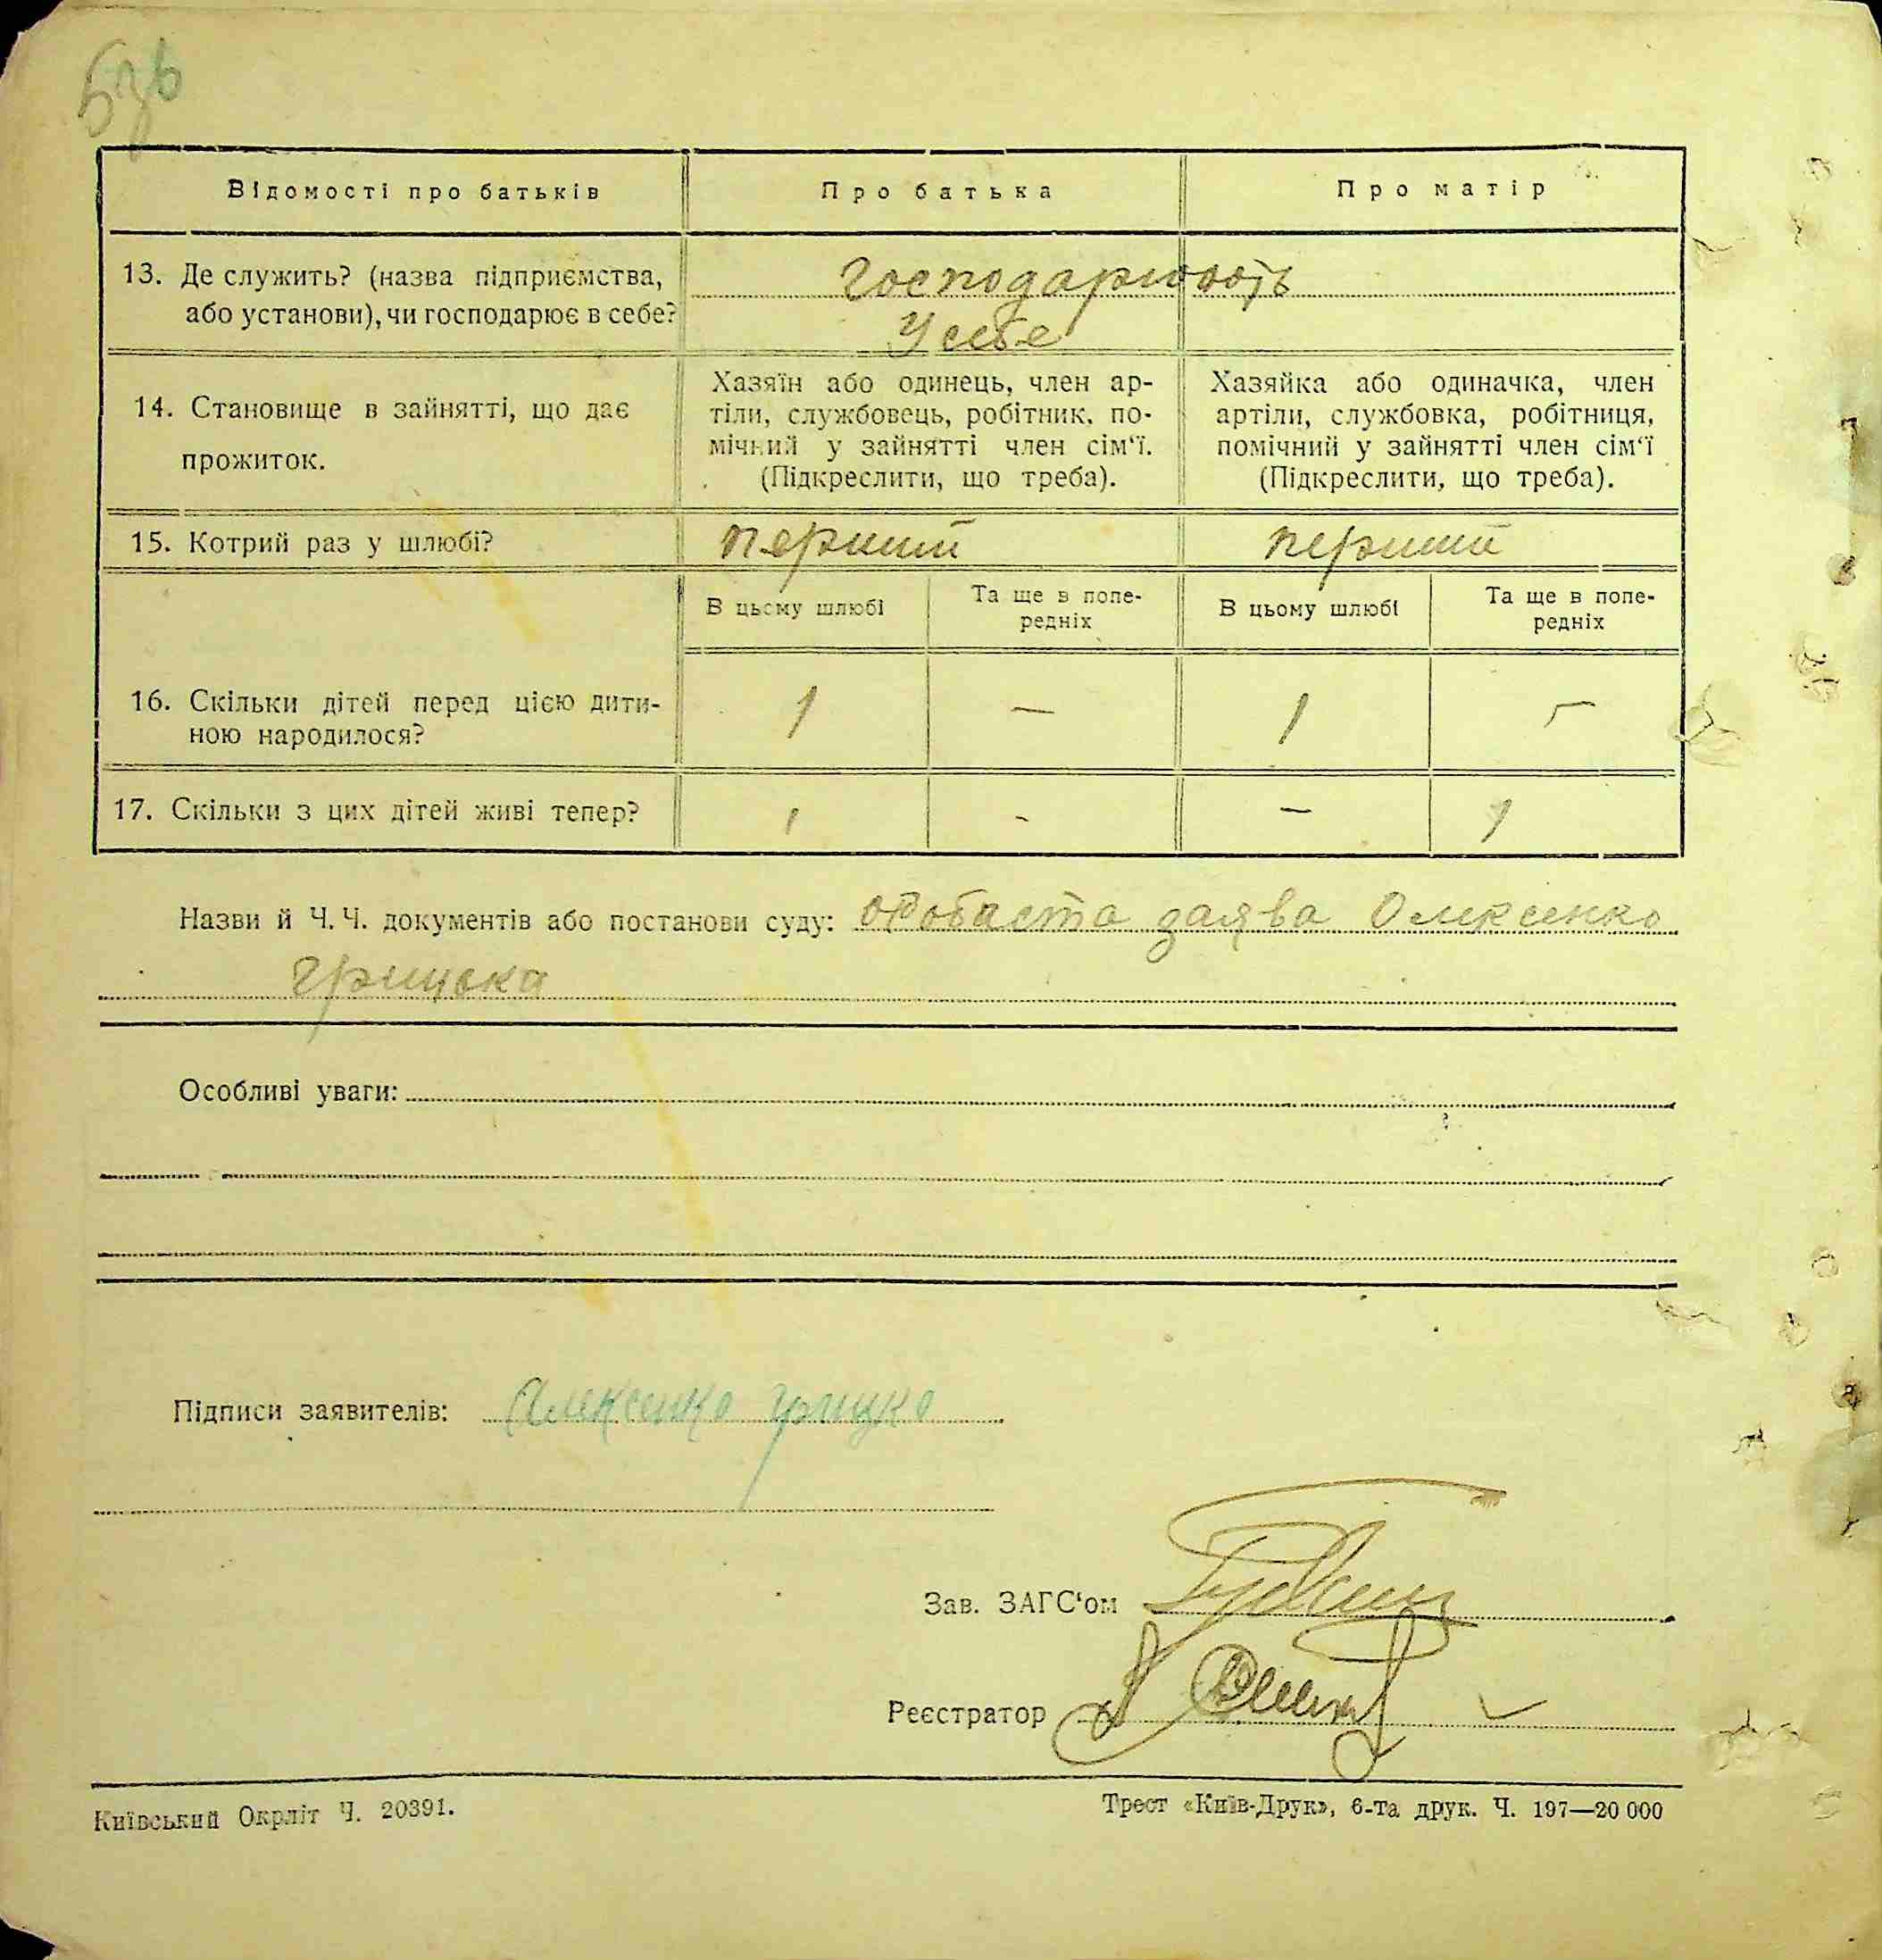 Відомості про батьків
Про батька
Про матір
13. Де служить? (назва підприємства,
або установи), чи господарює в себе?
господарюють
У себе
14. Становище в зайнятті, що дає
прожиток.
Хазяїн або одинець, член ар-
тіли, службовець, робітник, по-
мічний у зайнятті член сім‘ї.
(Підкреслити, що треба).
Хазяйка або одиначка, член
артіли, службовка, робітниця,
помічний у зайнятті член сім‘ї
(Підкреслити, що треба).
15. Котрий раз у шлюбі?
перший
перший
В цьому шлюбі
Та ще в попе-
редніх
В цьому шлюбі
Та ще в попе-
редніх
16. Скільки дітей перед цією дити-
ною народилося?
1
—
1
—
17. Скільки з цих дітей живі тепер?
1
-
—
1
Назви й Ч. Ч. документів або постанови суду: заява Олексенко
Грицька
Особливі уваги:
Підписи заявителів: Олексенко Грицко
Зав. ЗАГС‘ом
Реєстратор
Київський Окрліт Ч. 20391.
Трест «Київ-Друк», 6-та друк. Ч. 197—20 000